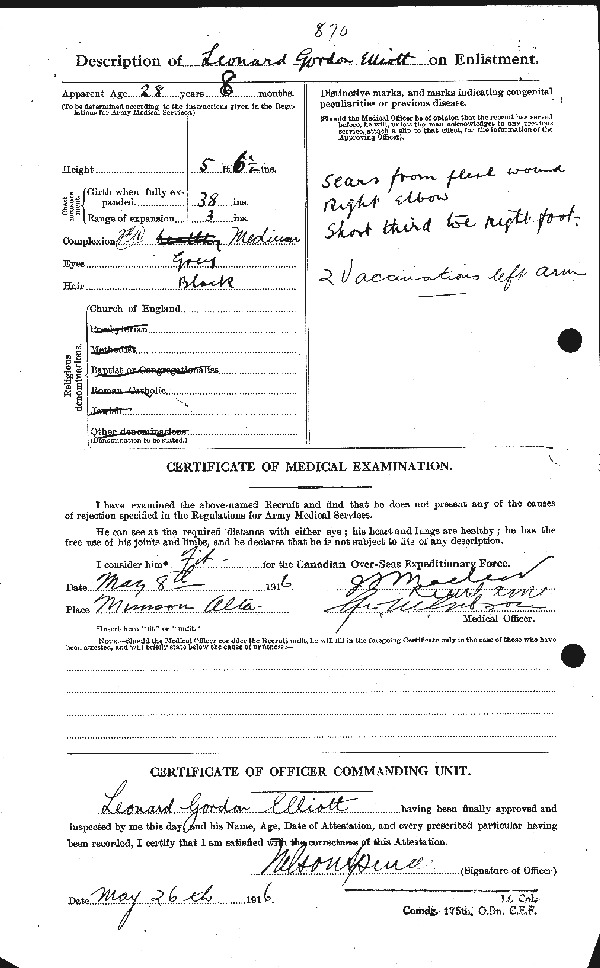 870
Description of Leonard Gordon Elliott on Enlistment.
Apparent Age 28 years 8 months.
(To be determined according to the instructions given in the Regulations for Army Medical Services.)
Height 5 ft. 6½ ins.
Chest measurement.
Girth when fully expanded 38 ins.
Range of expansion 3 ins.
Complexion healthy Medium
Eyes Grey
Hair Black
Religious denominations.
Church of England
Presbyterian
Methodist
Baptist or Congregationalist
Roman Catholic
Jewish
Other denominations
(Denomination to be stated.)
Distinctive marks, and marks indicating congenital
peculiarities or previous disease.
(Should the Medical Officer be of opinion that the recruit has served
before, he will, unless the man acknowledges to any previous
service, attach a slip to that effect, for the information of the
Approving Officer).
Scars from flesh wound
Right elbow
Short third toe right foot.
2 Vaccinations left arm
CERTIFICATE OF MEDICAL EXAMINATION.
I have examined the above-named Recruit and find that he does not present any of the causes
of rejection specified in the Regulations for Army Medical Services.
He can see at the required distance with either eye ; his heart and lungs are healthy ; he has the
free use of his joints and limbs, and he declares that he is not subject to fits of any description.
I consider him* Fit for the Canadian Over-Seas Expeditionary Force.
Date May 8th 1916
Place Munson Alta
Medical Officer.
*Insert here "fit" or "unfit."
NOTE.—Should the Medical Officer consider the Recruit unfit, he will fill in the foregoing Certificate only in the case of those who have
been attested, and will briefly state below the cause of unfitness:—
CERTIFICATE OF OFFICER COMMANDING UNIT.
Leonard Gordon Elliott having been finally approved and
inspected by me this day, and his Name, Age, Date of Attestation, and every prescribed particular having
been recorded, I certify that I am satisfied with the correctness of this Attestation.
Nelson Spencer (Signature of Officer)
Date May 26th 1916
Lt Col.
Comdg. 175th, O.Bn. C.E.F.